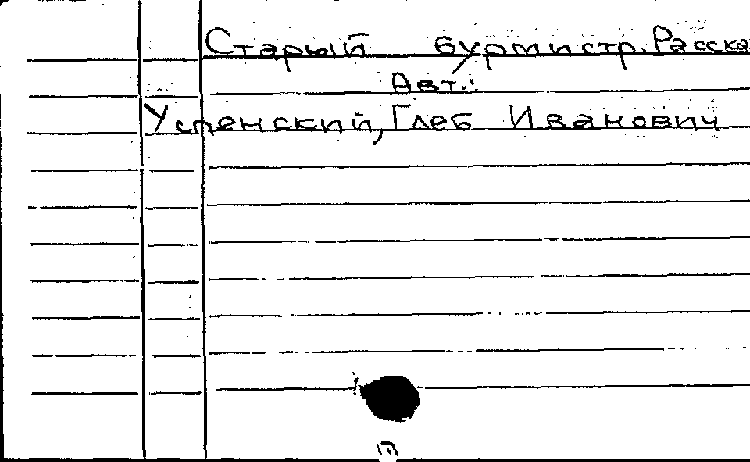 Старый бурмистр. Расска
Авт.:
Успенский, Глеб Иванович